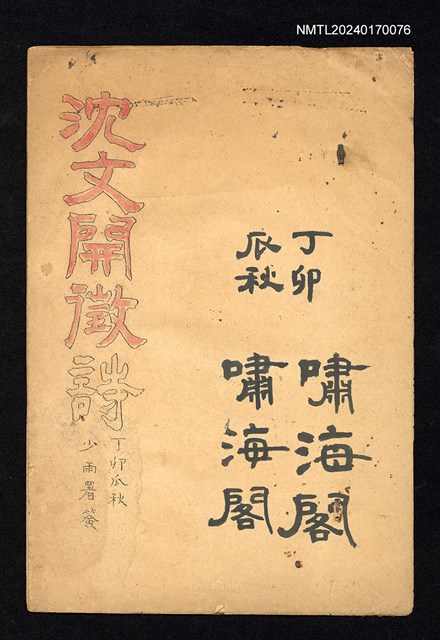 NMTL20240170076
丁卯
瓜秋
嘯海閣
嘯海閣
沈文開徵詩
丁卯瓜秋
少雨署簽